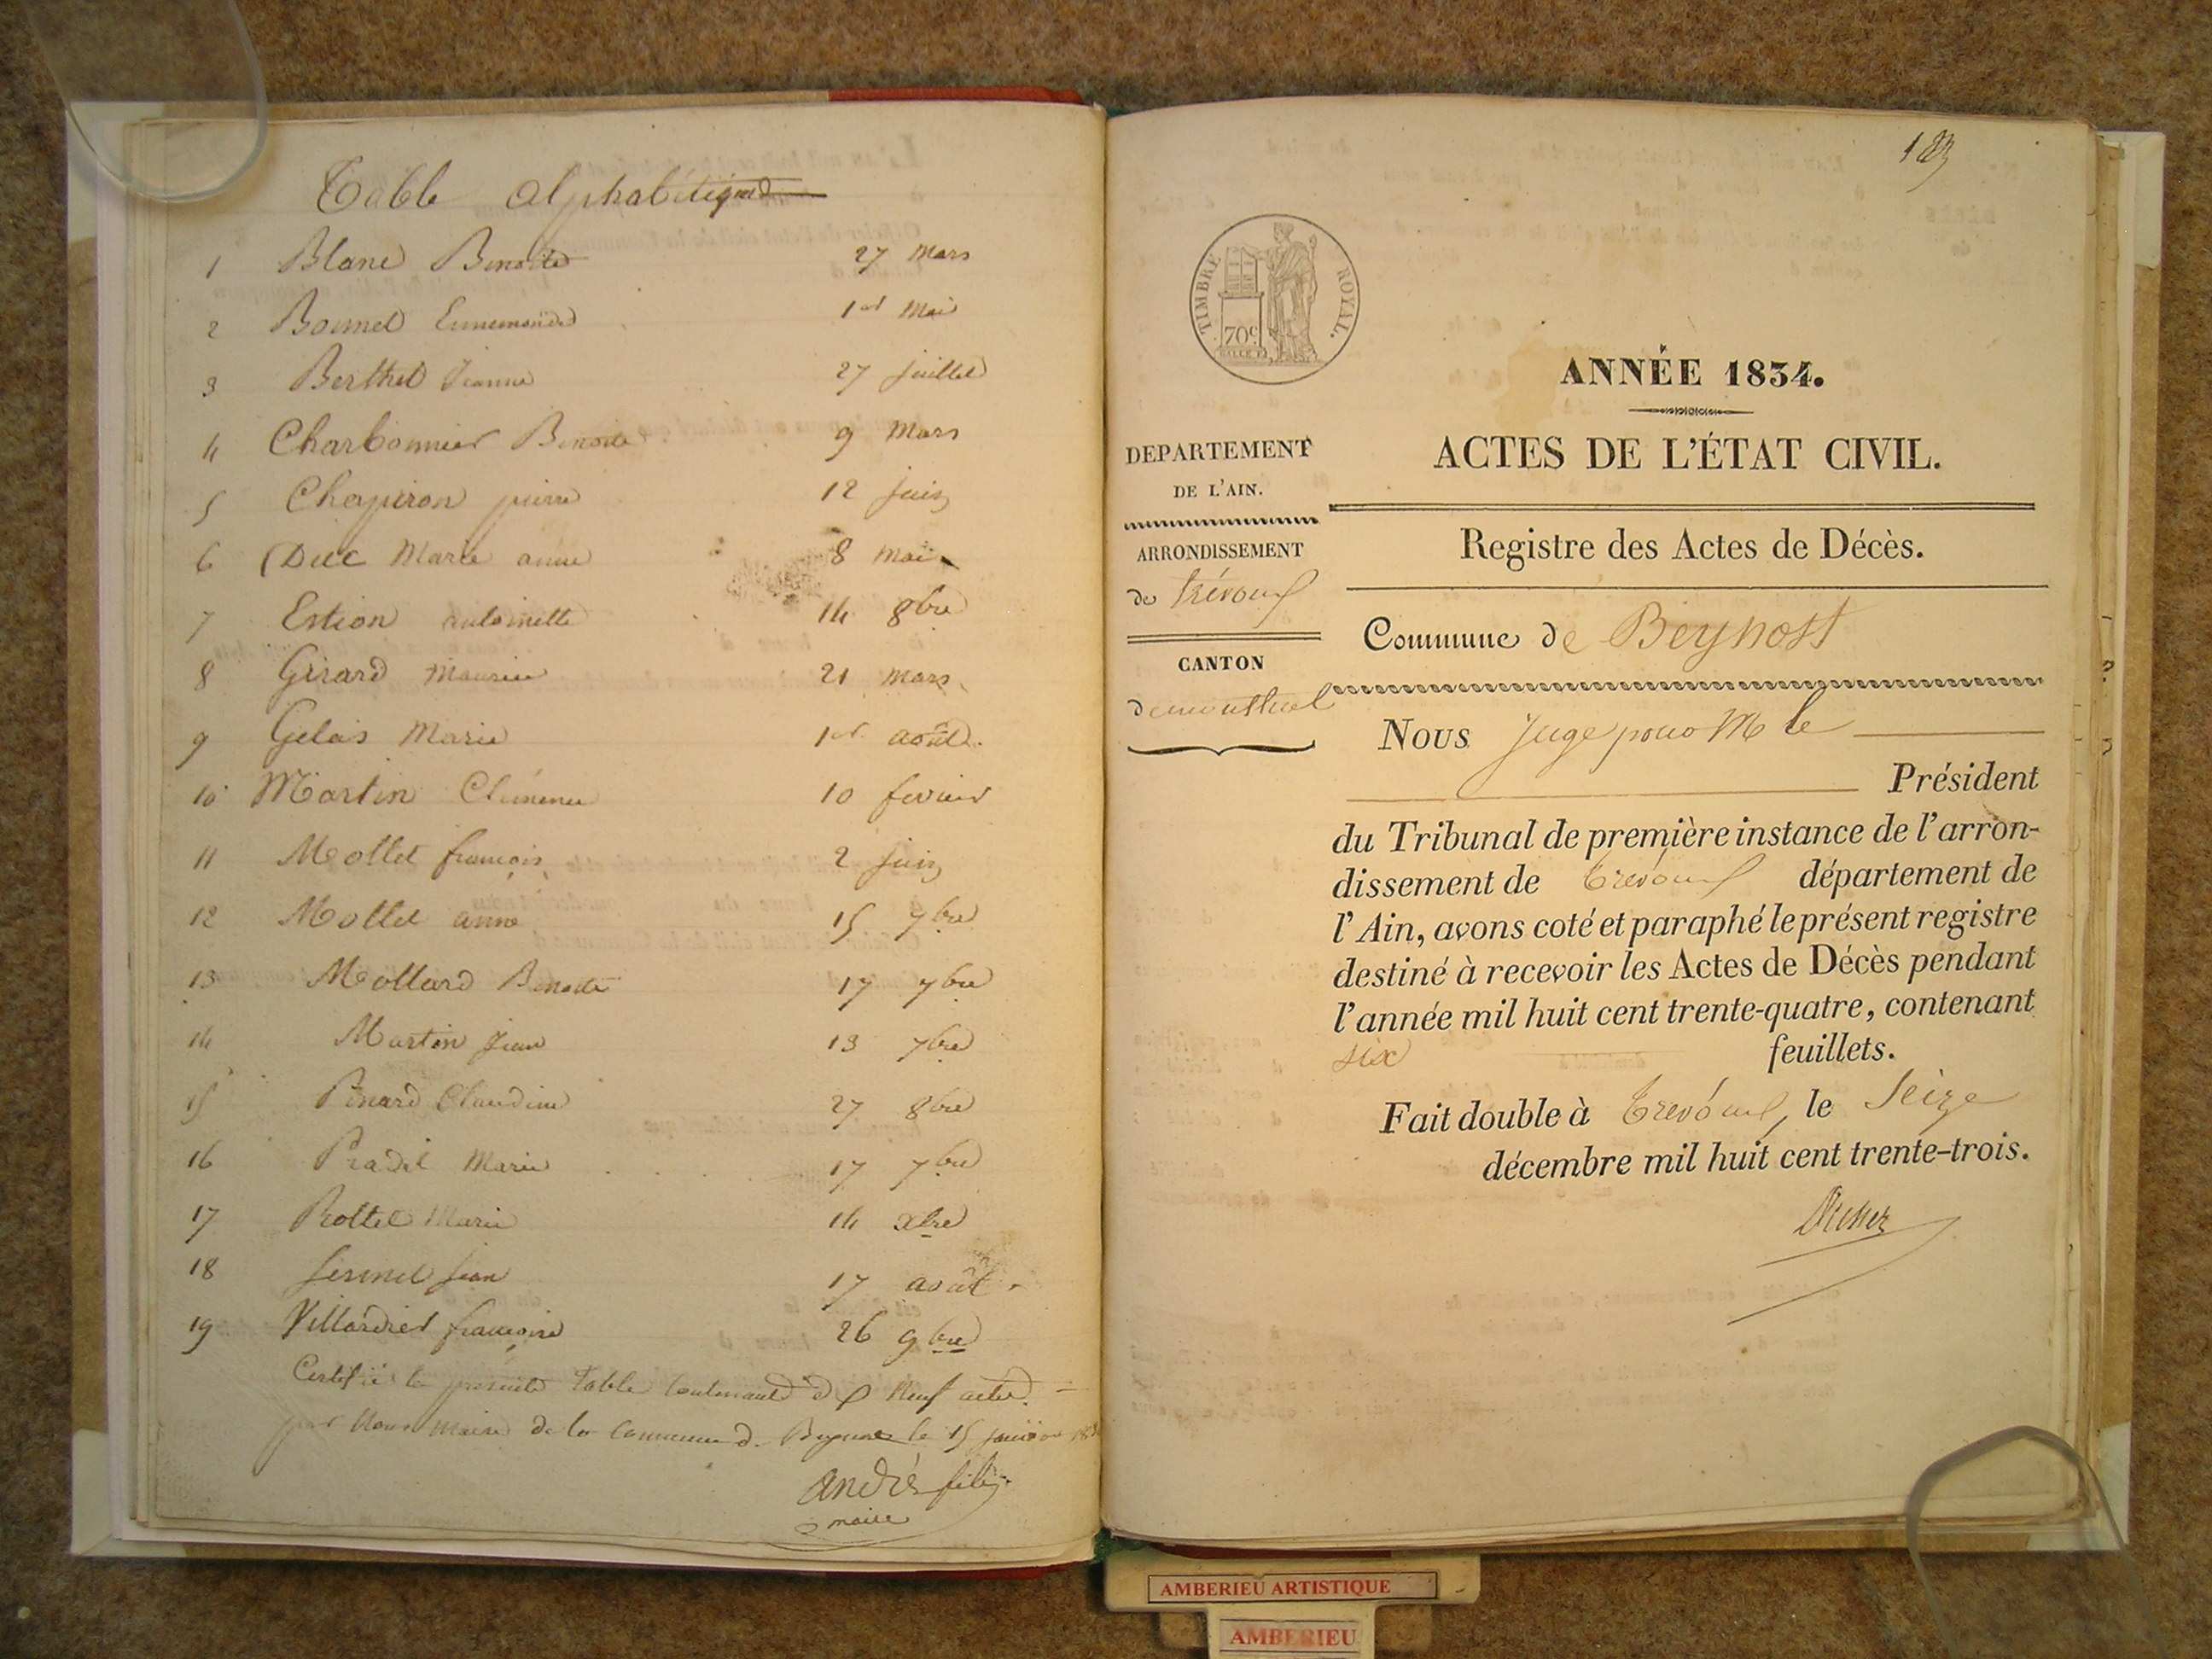 Table alphabétique
1 Blanc Benoite 27 Mars
2 Bonnet Ennemonde 1er Mai
3 Berthet Jeanne 27 juillet
4 Charbonnier Benoite 9 Mars
5 Chapiron pierre 12 juin
6 Duc Marie anne 8 mai
7 Estion antoinette 14 8bre
8 Girard Maurice 21 mars
9 Gelas Marie 1er août
10 Martin Clémence 10 fevrier
11 Mollet françois 2 juin
12 Mollet anne 15 7bre
13 Mollard Benoite 17 7bre
14 Martin Jean 13 7bre
15 Pinard Claudine 27 8bre
16 Pradel Marie 17 7bre
17 Rottet Marie 14 xbre
18 jean 17 août
19 Villardier françoise 26 9bre
Certifié la présente table contenant d Neuf actes
par Nous maire de la commune de Beynost le 15 janvier
André fils
maire
183
TIMBRE ROYAL.
70c
ANNÉE 1834.
ACTES DE L'ÉTAT CIVIL.
DEPARTEMENT
DE L'AIN.
ARRONDISSEMENT
de Trévoux
CANTON
de montluel
Registre des Actes de Décès.
Commune de Beynost
Nous juge pour M le
Président
du Tribunal de première instance de l'arron-
dissement de Trévoux département de
l'Ain, avons coté et paraphé le présent registre
destiné à recevoir les Actes de Décès pendant
l'année mil huit cent trente-quatre, contenant
six feuillets.
Fait double à Trévoux, le Seize
décembre mil huit cent trente-trois.
AMBERIEU ARTISTIQUE
AMBERIEU